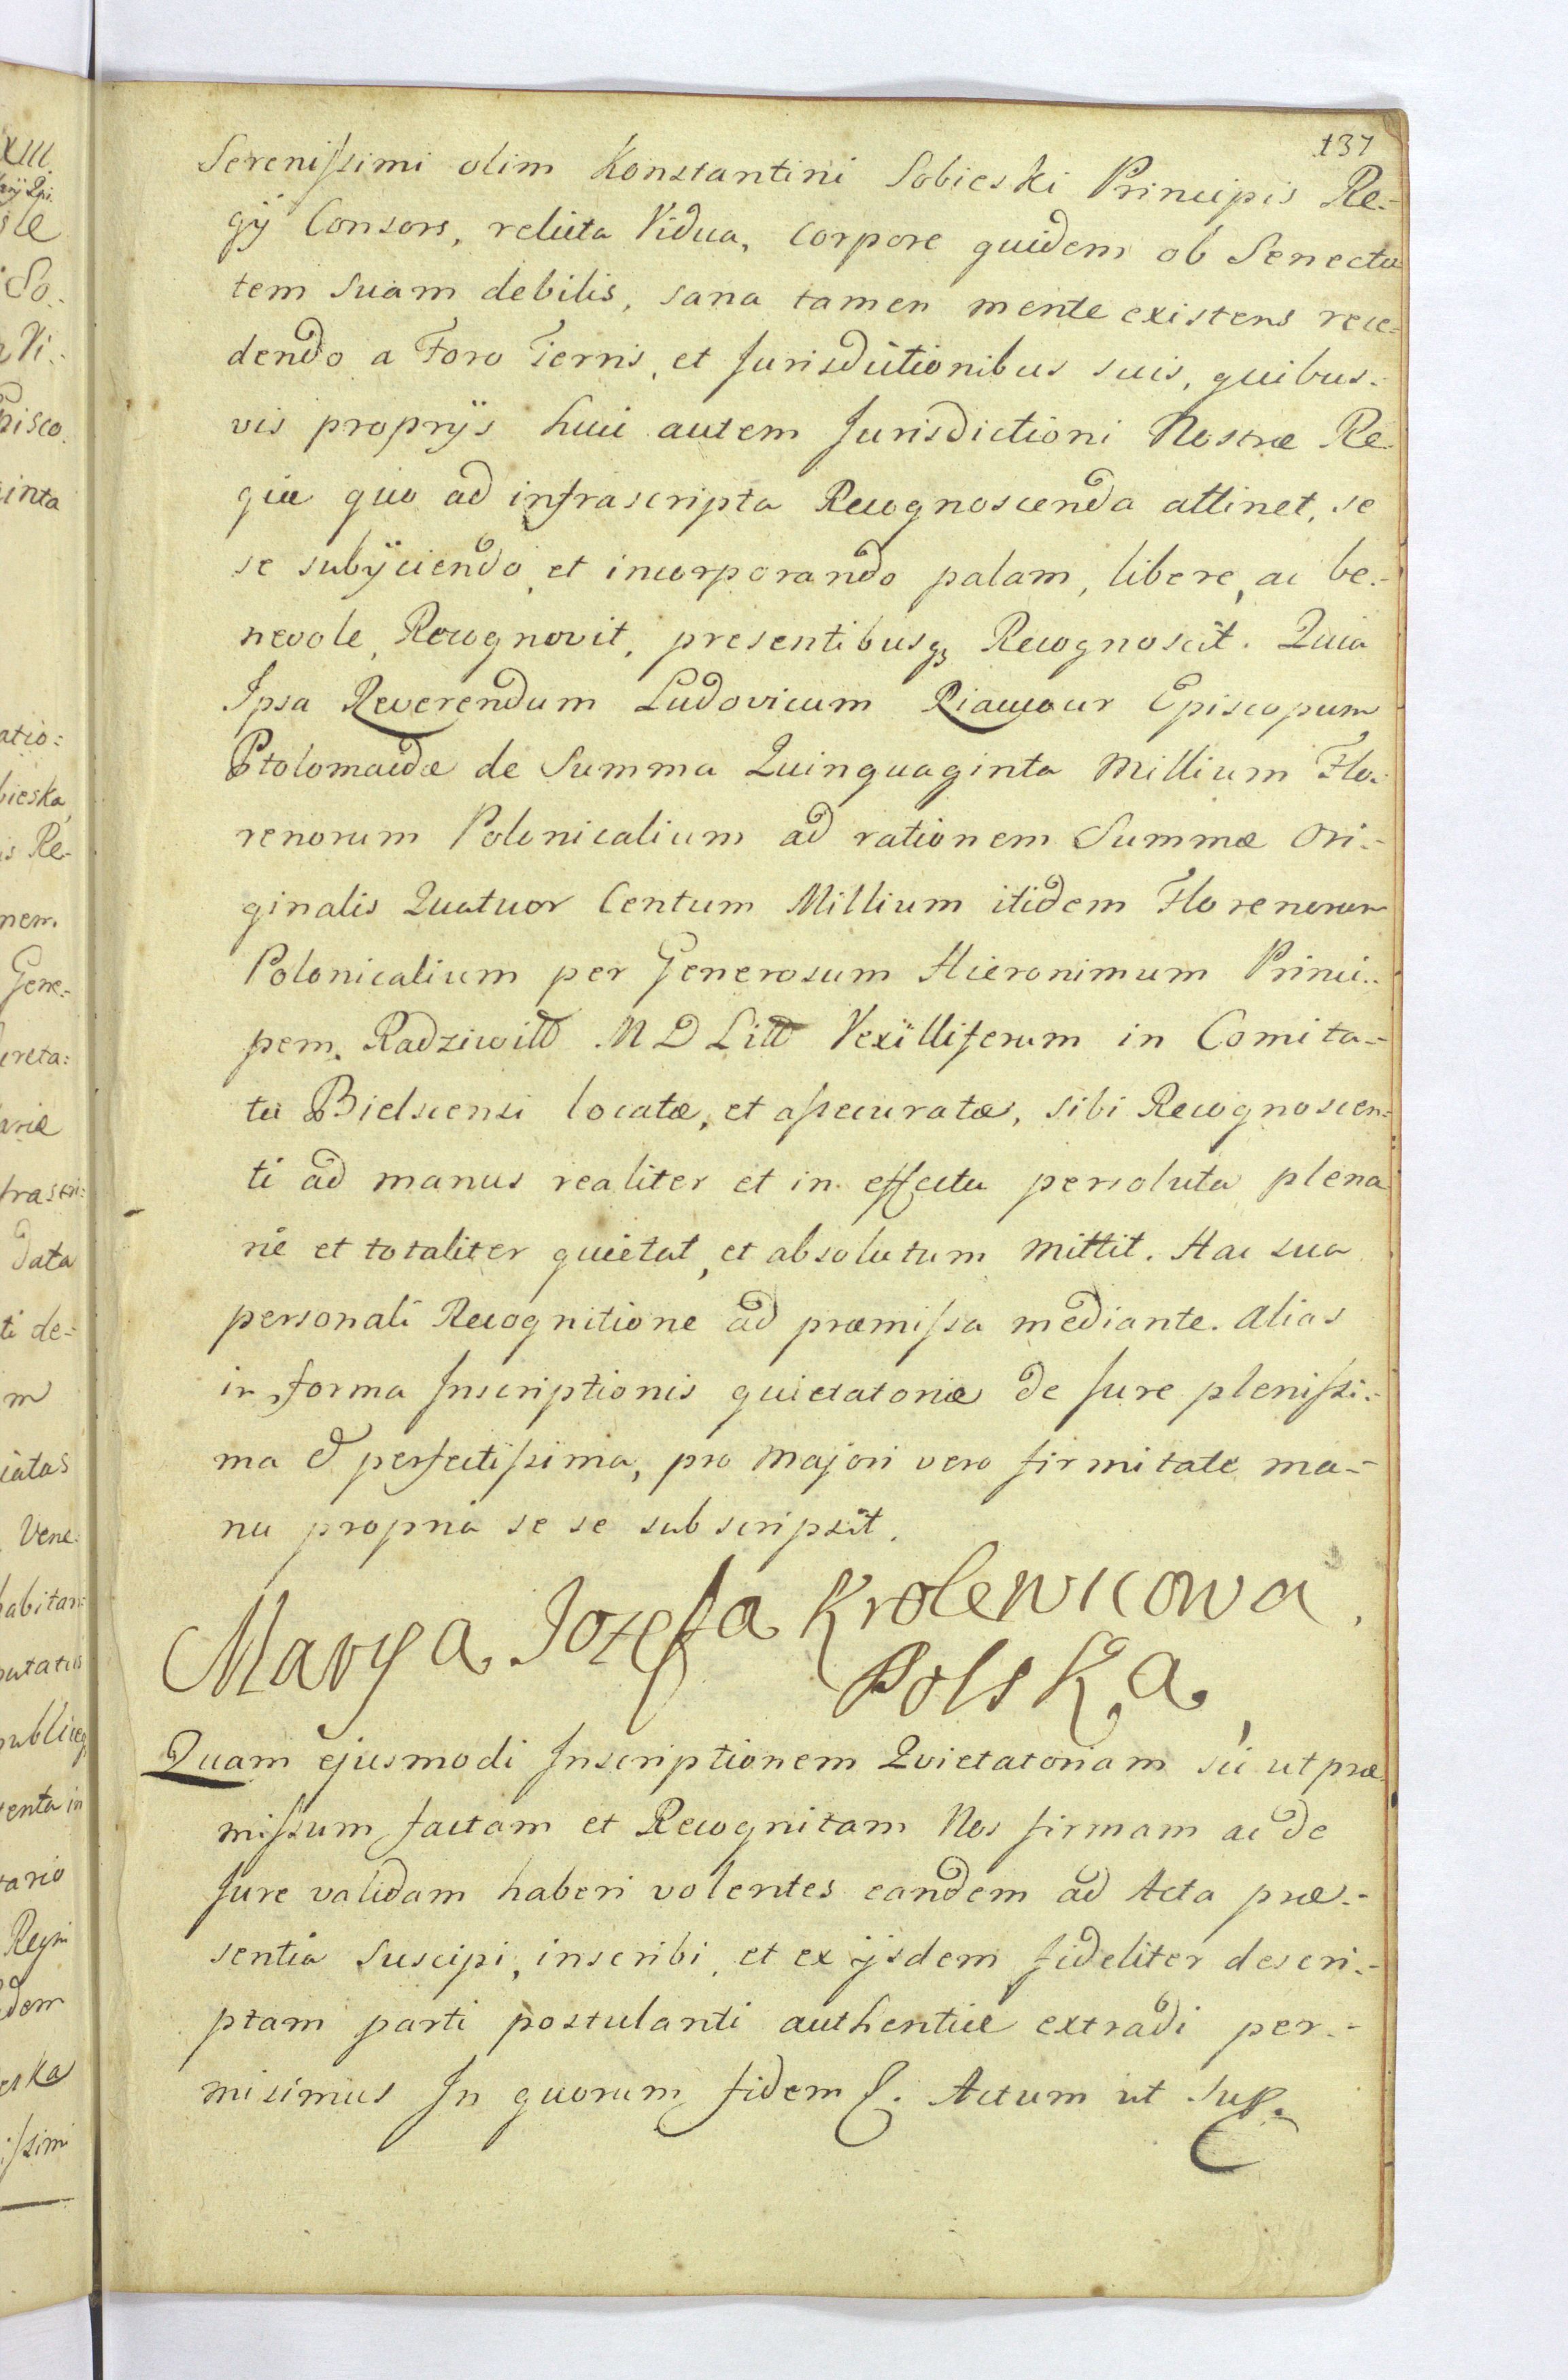 137
Serenissimi olim Konstantini Sobieski Principis Re-
gÿ Consors, relicta Vidua, corpore quidem ob Senectu
tem suam debilis, sana tamen mente existens rece-
dendo a Foro Terris, et Jurisdictionibus suis, quibus-
vis proprÿs huic autem Jurisdictioni Nostræ Re
giæ quo ad infrascripta Recognoscenda attinet, se
se subÿciendo, et incorporando palam, libere, ac be-
nevole, Recognovit, presentibusq Recognoscit. Quia
Ipsa Reverendum Ludovicum Riaucour Episcopum
Ptolomaidæ de Summa Quinquaginta Millium Flo-
renorum Polonicalium ad rationem Summæ Ori-
ginalis Quatuor Centum Millium itidem Florenorum
Polonicalium per Generosum Hieronimum Princi-
pem Radziwill M D Litt Vexilliferum in Comita-
tu Bielscensi locatæ, et assecuratæ, sibi Recognoscen-
ti ad manus realiter et in effectu persoluta plena
rie et totaliter quietat, et absolutum mittit. Hac sua
personali Recognitione ad præmissa mediante. Alias
in forma Inscriptionis quietatoriæ de Jure plenissi-
ma & perfectissima, pro majori vero firmitate ma-
nu propria se se subscripsit.
Marya Jozefa Krolewicowa
Polska
Quam ejusmodi Inscriptionem Quietatoriam sic ut præ
missum factam et Recognitam Nos firmam ac de
Jure validam haberi volentes eandem ad Acta præ-
sentia Suscipi, inscribi, et ex ÿsdem fideliter descri-
ptam parti postulanti authentice extradi per-
misimus In quorum fidem Actum ut Sup.